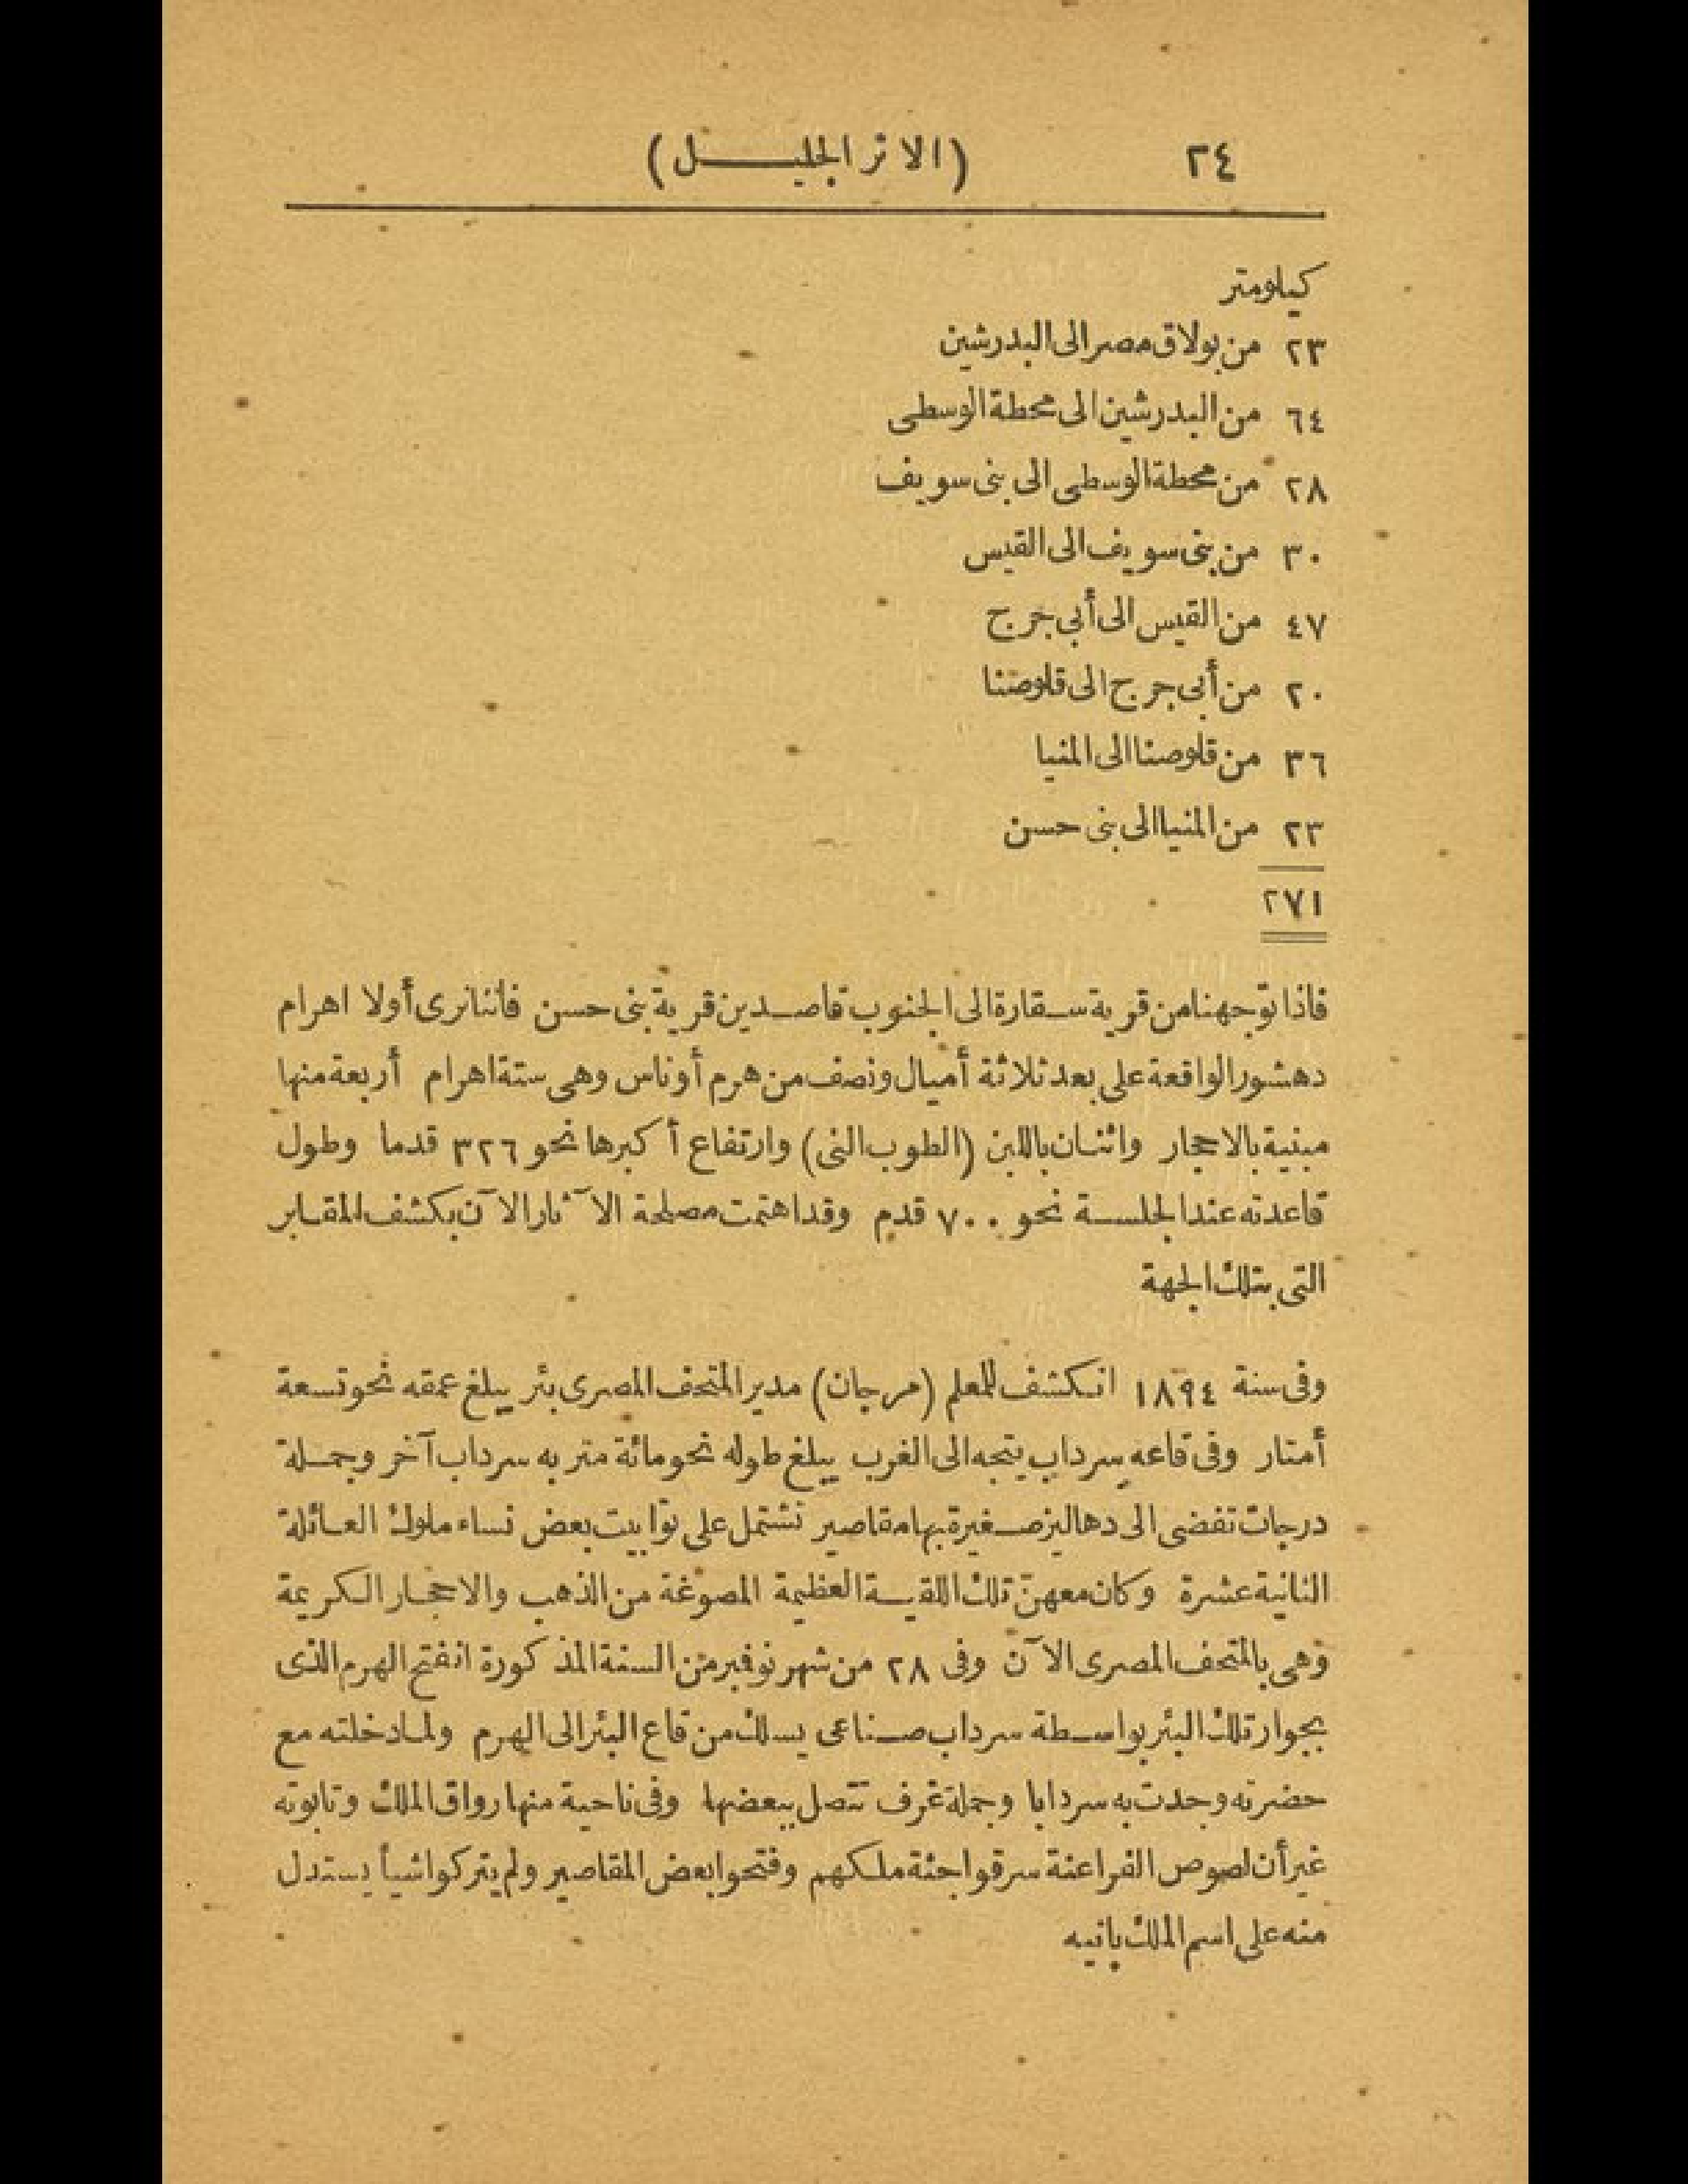 ٢٤ (الاثر الجليل)
كيلومتر
٢٣ من بولاق مصر الى البدرشين
٦٤ من البدرشين الى محطة الوسطى
٢٨ من محطة الوسطى الى بنى سويف
٣٠ من بنى سويف الى القيس
٤٧ من القيس الى أبى جرج
٢٠ من أبى جرج الى قلوصنا
٣٦ من قلوصنا الى المنيا
٢٣ من المنيا الى بنى حسن
٢٧١
فاذا توجهنا من قرية سقارة الى الجنوب قاصدين قرية بنى حسن فأننا نرى أولا اهرام
دهشور الواقعة على بعد ثلاثة أميال ونصف من هرم أوناس وهى ستة اهرام أربعة منها
مبنية بالاحجار واثنان باللبن (الطوب النى) وارتفاع أكبرها نحو ٣٢٦ قدما وطول
قاعدته عند الجلسة نحو ٧٠٠ قدم وقد اهتمت مصلحة الآثار الآن بكشف المقابر
التى بتلك الجهة
وفى سنة ١٨٩٤ انكشف للمعلم (مرجان) مدير المتحف المصرى بئر يبلغ عمقه نحو تسعة
أمتار وفى قاعه سرداب يتجه الى الغرب يبلغ طوله نحو مائة متر به سرداب آخر وجملة
درجات تفضى الى دهاليز صغيرة بها مقاصير تشتمل على توابيت بعض نساء ملوك العائلة
الثانية عشرة وكان معهنّ تلك اللقية العظيمة المصوغة من الذهب والاحجار الكريمة
وهى بالمتحف المصرى الآن وفى ٢٨ من شهر نوفبر من السنة المذكورة انفتح الهرم الذى
بجوار تلك البئر بواسطة سرداب صناعى يسلك من قاع البئر الى الهرم ولما دخلته مع
حضرته وجدت به سردابا وجملة غرف تتصل ببعضها وفى ناحية منها رواق الملك وتابوته
غير أن لصوص الفراعنة سرقوا جثة ملكهم وفتحوا بعض المقاصير ولم يتركوا شيأ يستدل
منه على اسم الملك بانيه